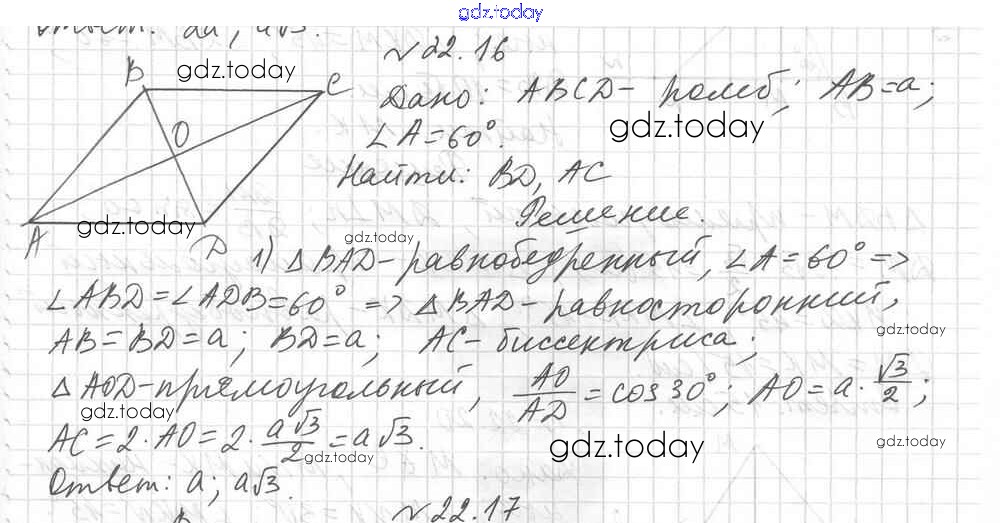 gdz.today
Ответ: 2a; a√3.
№22.16
B
gdz.today
C
Дано: ABCD - ромб; AB=a;
O
gdz.today
∠A=60°.
Найти: BD, AC
A
gdz.today
D
Решение.
gdz.today
1) △BAD - равнобедренный, ∠A=60° =>
∠ABD=∠ADB=60° => △BAD - равносторонний,
gdz.today
AB=BD=a; BD=a; AC - биссектриса;
△AOD - прямоугольный, AO/AD = cos 30°; AO=a·√3/2;
gdz.today
AC=2·AO=2·a√3/2=a√3.
gdz.today
gdz.today
gdz.today
Ответ: a; a√3.
№22.17